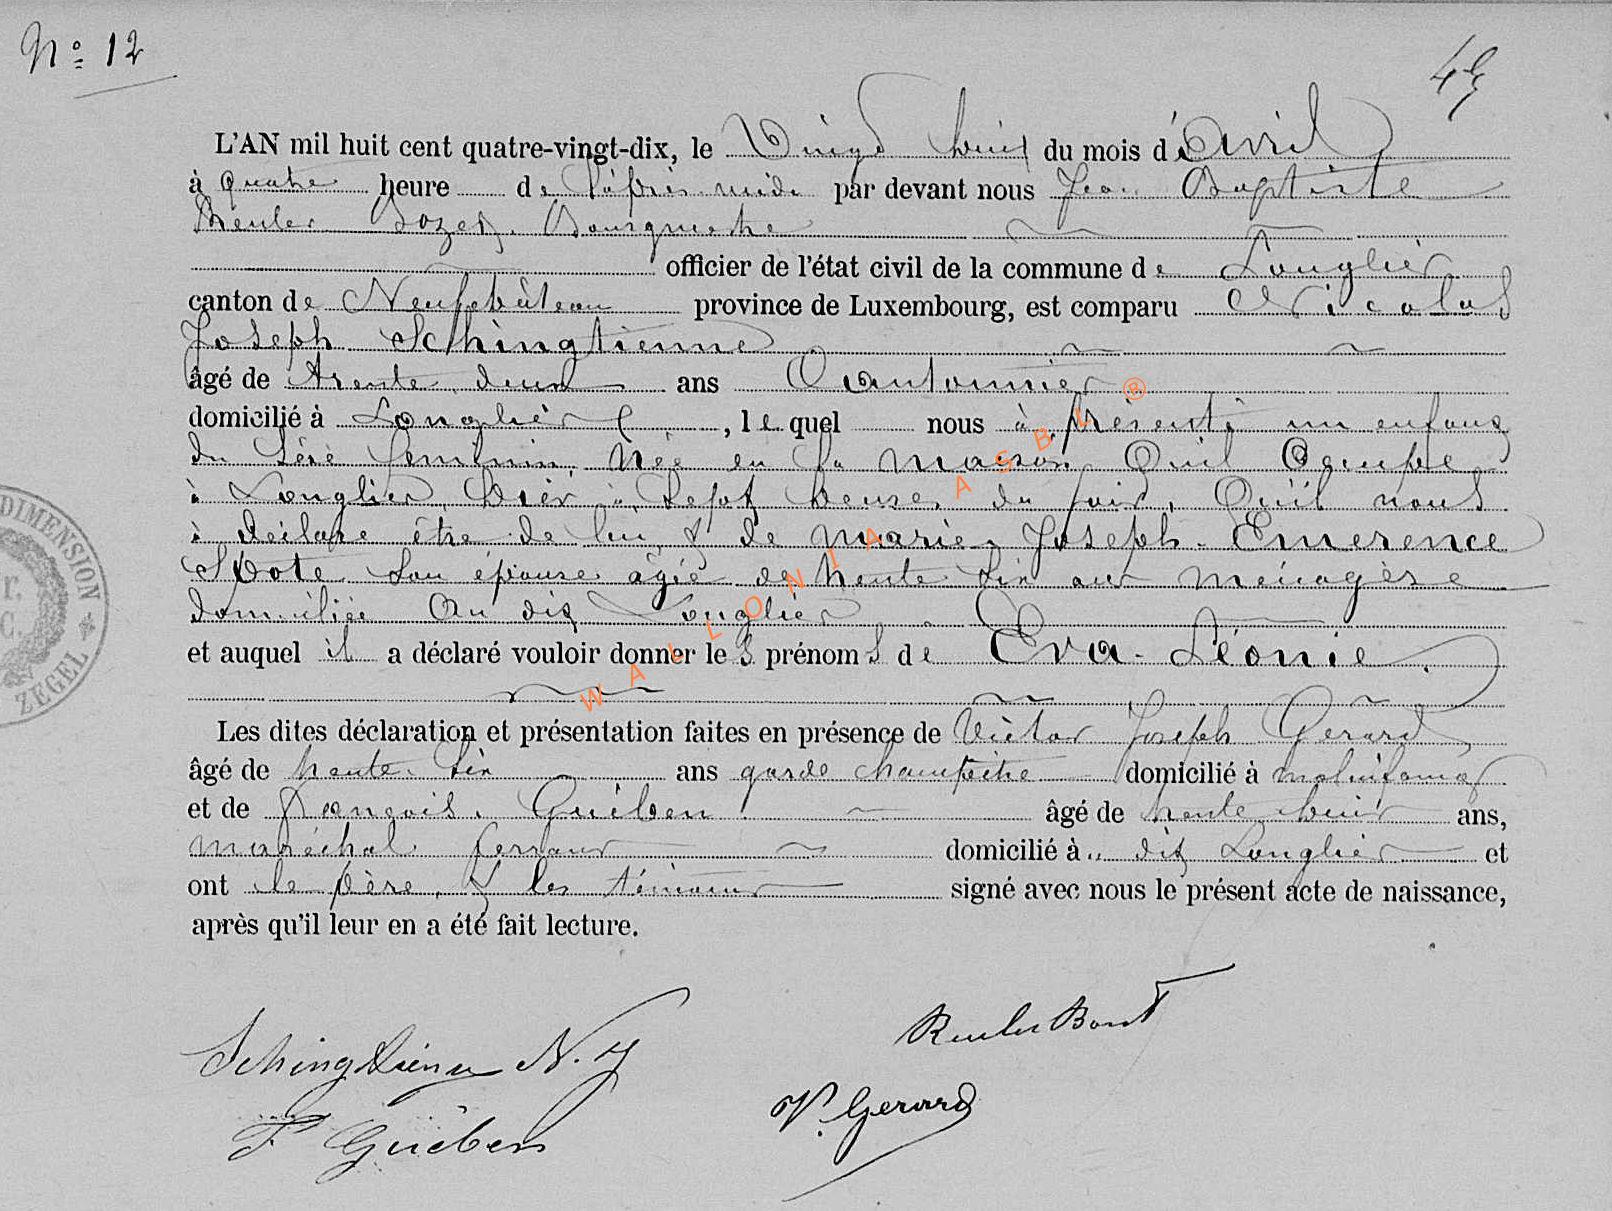 N° 12
49
L'AN mil huit cent quatre-vingt-dix, le Vingt huit du mois d'Avril
à quatre heure de l'après midi par devant nous Jean Baptiste
Reuler Bourgmestre
officier de l'état civil de la commune de Longlier
canton de Neufchâteau province de Luxembourg, est comparu Nicolas
Joseph Schingtienne
âgé de trente deux ans Cantonnier
domicilié à Longlier, lequel nous à présenté un enfant
du sexe feminin, Née en la maison Qu'il Occupe
à Longlier, hier à sept heures du soir, Qu'il nous
à déclaré être de lui & de marie Joseph Emerence
son épouse agée de trente six ans ménagère
domiciliée Au dit Longlier
et auquel il a déclaré vouloir donner les prénomS de Eva-Léonie.
Les dites déclaration et présentation faites en présence de Victor Joseph Gerard
âgé de trente six ans garde champêtre domicilié à molinfaing
et de François Guiben âgé de trente huit ans,
maréchal ferrant domicilié à dit Longlier et
ont le père & les témoins signé avec nous le présent acte de naissance,
après qu'il leur en a été fait lecture.
Schingtienne N. J
V. Gerard
F Guiben
DIMENSION
ZEGEL
WALLONIA ASBL ®